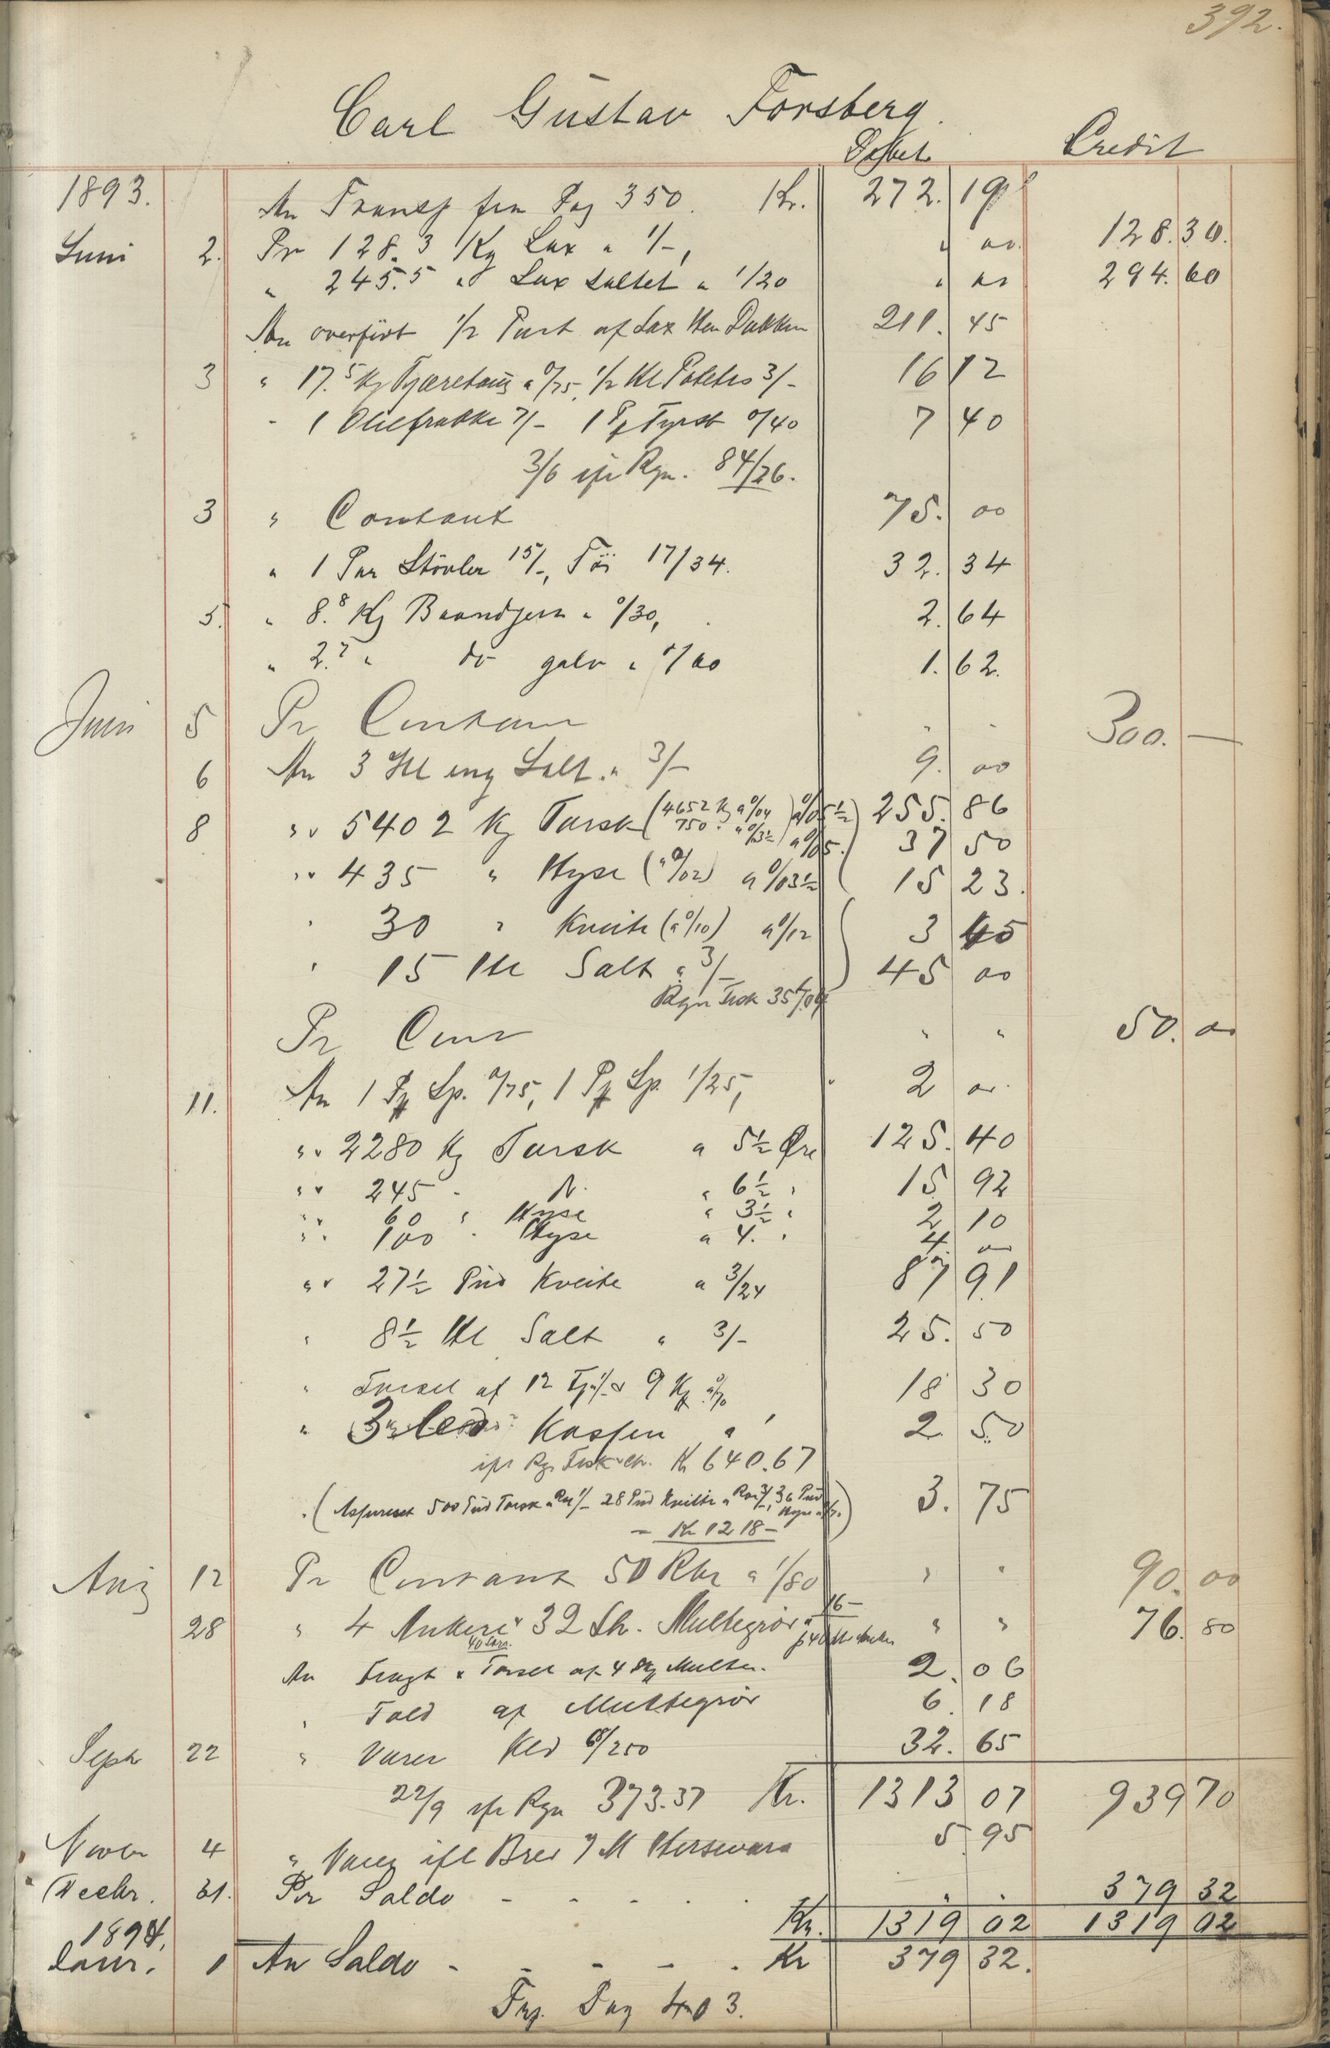 392.
Carl Gustav Forsberg.
Debet Credit
1893. An Transp fra Pag 350. Kr. 272. 19
Juni 2. Pr 128.3 Kg Lax a 1/-, " " 128. 30.
" 245.5 " Lax saltet a 1/20 " " 294. 60
An overført 1/2 Part af Lax 211. 45
3 " 17.5 Kg Tjæretoug a 0/75, 1/2 Hl Potetes 3/- 16 12
" 1 Oliefrakke 7/- 1 0/40 7 40
3/6 ifl Rgn. 84/26.
3 " Contant 75. 00
" 1 Par Støvler 15/-, Töi 17/34. 32. 34
5. " 8.8 Kg Baandjern a 0/30, 2. 64
" 2.7 " do galv a 0/60 1. 62.
Juni 5 Pr Contant " " 300. —
6 An 3 Hl eng Salt a 3/- 9. 00
8 " " 5402 Kg Torsk (4652 Kg a 0/04 750 " a 0/03 1/2) a 0/05 1/2 a 0/05. 255. 86
37 50
" " 435 " Hyse (a 0/02) a 0/03 1/2 15 23.
" 30 " Kveite (a 0/10) a 0/12 3
" 15 Hl Salt a 3/- 45 00
Rgn Fisk
Pr Cont " " 50. 00
11. An 1 Pk Sp. 0/75, 1 Pk Sp. 1/25, 2 00
" " 2280 Kg Torsk a 5 1/2 Øre 125. 40
" " 245 " " 6 1/2 " 15 92
" " 60 " Hyse " 3 1/2 " 2 10
" " 100 " Hyse a 4. " 4. 00
" " 27 1/2 Pud Kveite a 3/24 87 91
" 8 1/2 Hl Salt a 3/- 25. 50
" af 12 & 9 18 30
" 3 Kassen a 2. 50
ifl Rgn Fisk Kr 640.67
(Assureret 500 Pud Torsk a 1/- 28 Pud Kveite a 3/, 36 Pud Hyse) 3. 75
— Kr 1218 —
Aug 12 Pr Contant 50 Rbr a 1/80 " " 90. 00
28 " 4 Ankere 32 Multegrör a 16- " " 76. 80
An Fragt & af 4 Multer. 2. 06
" Told af Multegrör 6. 18
Sept 22 " Varer 32. 65
22/9 ifl Rgn 373.37 Kr. 1313 07 939 70
Novbr 4 " Varer ifl Brev 5 95
Decbr. 31. Pr Saldo - - - - - " " 379 32
Kr. 1319 02 1319 02
1894. Janr. 1 An Saldo - - - - - Kr 379 32.
Trp. Pag 403.